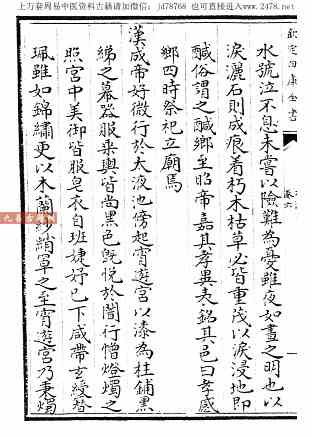 上万套周易中医资料古籍请加微信：jd78768 也可直接进入：www.2478.net
欽定四庫全書
卷六
水號泣不息未嘗以險難為憂雖夜如晝之明也以
淚灑石則成痕着朽木枯草必皆重茂以淚浸地即
鹹俗謂之鹹鄉至昭帝嘉其孝異表銘其邑曰孝感
鄉四時祭祀立廟焉
漢成帝好微行於太液池傍起宵遊宮以漆為柱鋪黑
綈之幕器服乗輿皆尚黑色既悦於闇行憎燈燭之
照宮中美御皆服皂衣自班婕妤已下咸帶玄綬替
珮雖如錦繡更以木蘭紗綃罩之至宵遊宮乃秉燭
九易古籍